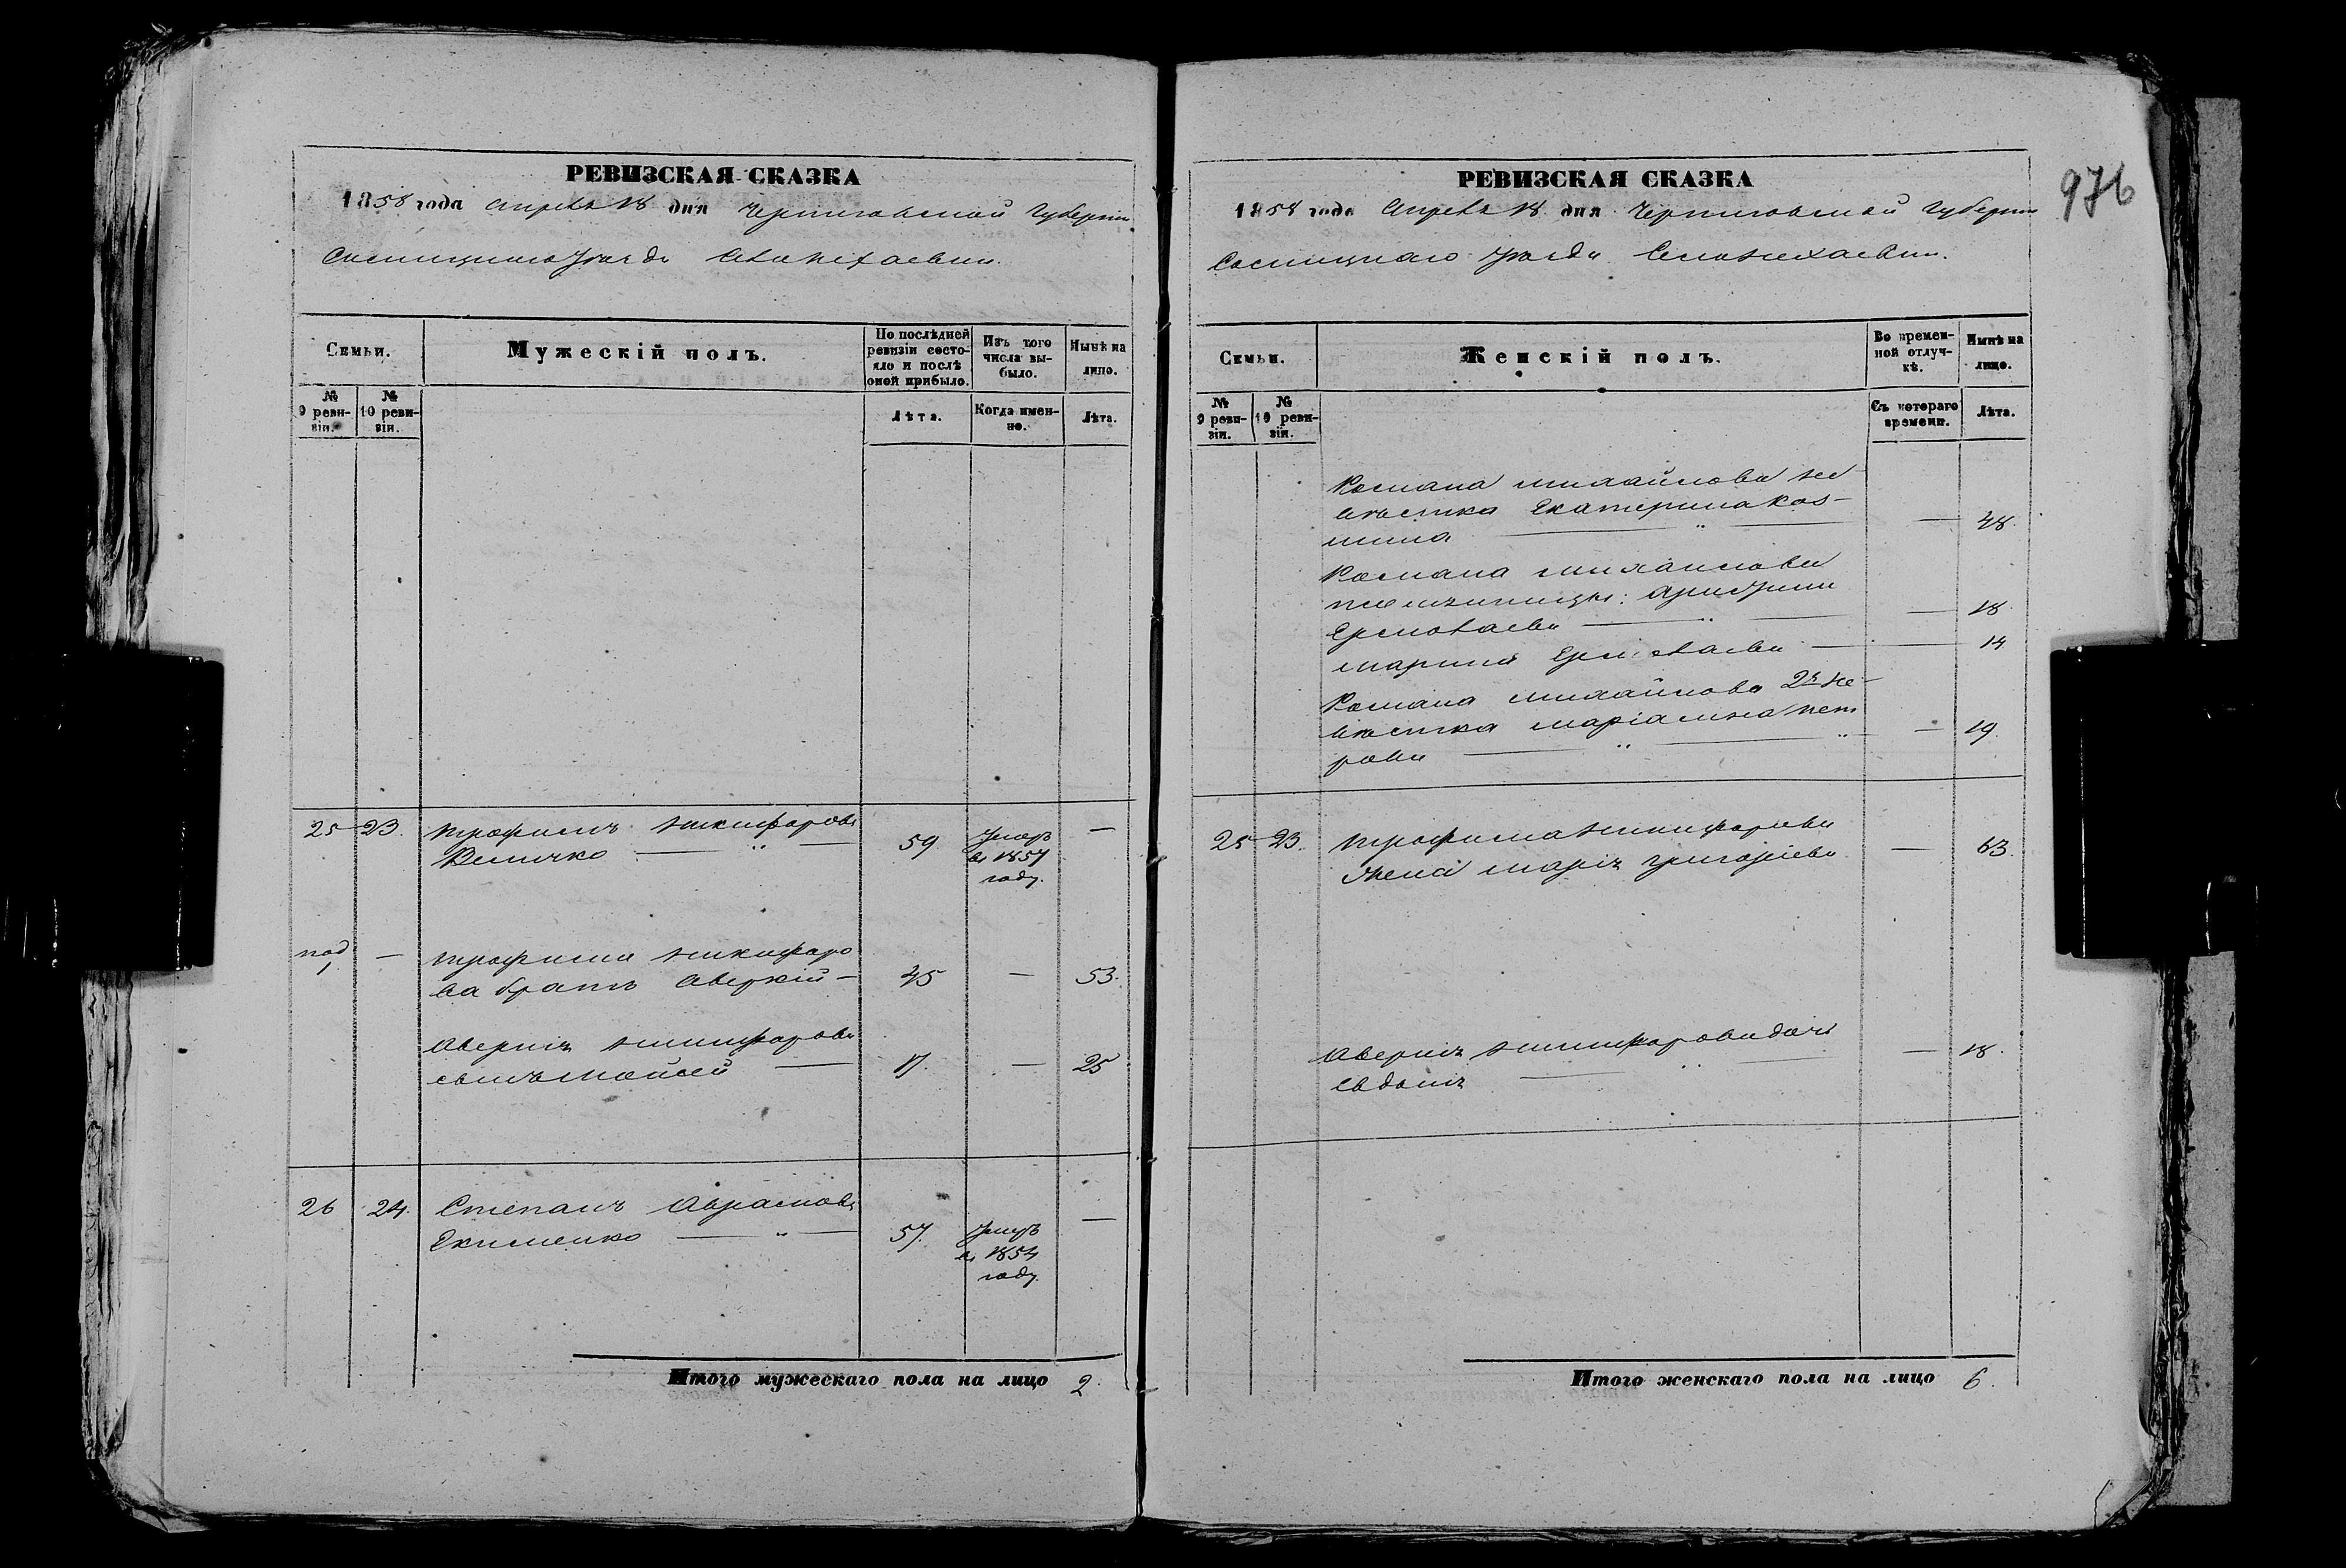 РЕВИЗСКАЯ СКАЗКА
1858 года Апреля 18 дня Черниговской Губернии
Сосницкаго Уезда Села Нехаевки.
Семьи.
Мужескій полъ.
По послѣдней ревизіи состояло и послѣ оной прибыло.
Изъ того числа выбыло.
Нынѣ на лицо.
№ 9 ревизіи.
№ 10 ревизіи.
Лѣта.
Когда именно.
Лѣта.
25 23. Трофимъ Никифоровъ
Величко 59 Умеръ —
в 1857
году.
под 1. — Трофима Никифоро
ва братъ Аверкій — 45 — 53.
Аверкія Никифорова
сынъ Мойсей — 17. — 25
26 24. Степанъ Аврамовъ
Екименко — 57. Умеръ —
в 1854
году.
Итого мужескаго пола на лицо 2.
976
РЕВИЗСКАЯ СКАЗКА
1858 года Апреля 18 дня Черниговской Губернии
Сосницкаго Уезда Села Нехаевки.
Семьи.
Женскій полъ.
Во временной отлучкѣ.
Нынѣ на лицо.
№ 9 ревизіи.
№ 10 ревизіи.
Съ котораго времени.
Лѣта.
Романа Михайлова не
вѣстка Екатерина Коз-
мина — — 48.
Романа Михайлова
племянницы:
Ермолаева — — 18.
Марина Ермолаева — — 14
Романа Михайлова 2я не-
вѣстка Маріамна Пет
рова — — 19.
25 23. Трофима Никифорова
жена Марія Григоріева — 63.
Аверкія Никифорова дочь
Евдокія — — 18.
Итого женскаго пола на лицо 6.